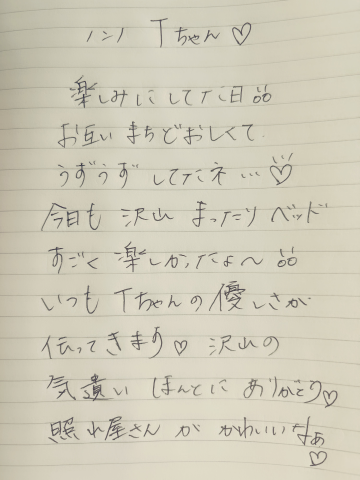 ハンハ Tちゃん♡
楽しみにしてた日♫
お互い まちどおしくて
うずうず してたネ…♡
今日も 沢山 まったり ベッド
すごく 楽しかったよ〜♫
いつも Tちゃんの優しさが
伝ってきます♡ 沢山の
気遣い ほんとに ありがとう♡
照れ屋さん が かわいいなぁ
♡